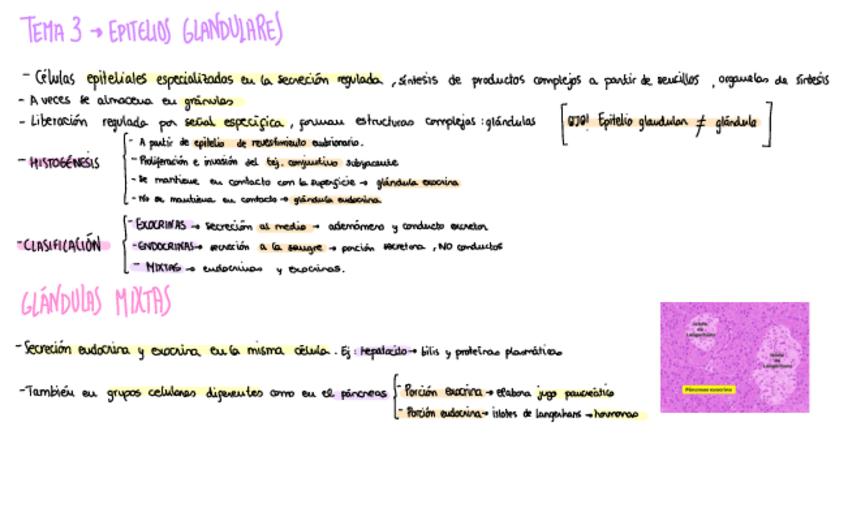 TEMA 3 → EPITELIOS GLANDULARES
- Células epiteliales especializadas en la secreción regulada, síntesis de productos complejos a partir de sencillos, organelas de síntesis
- A veces se almacena en gránulos
- Liberación regulada por señal específica, forman estructuras complejas: glándulas
[OJO! Epitelio glandular ≠ glándula]
- HISTOGÉNESIS
- A partir de epitelio de revestimiento embrionario.
- Proliferación e invasión del tej. conjuntivo subyacente
- Se mantiene en contacto con la superficie → glándula exocrina
- No se mantiene en contacto → glándula endocrina
- CLASIFICACIÓN
- EXOCRINAS → secreción al medio → adenómero y conducto excretor
- ENDOCRINAS → secreción a la sangre → porción secretora, NO conductos
- MIXTAS → endocrinas y exocrinas.
GLÁNDULAS MIXTAS
- Secreción endocrina y exocrina en la misma célula. Ej: hepatocito → bilis y proteínas plasmáticas
- También en grupos celulares diferentes como en el páncreas
- Porción exocrina → elabora jugo pancreático
- Porción endocrina → islotes de Langenhans → hormonas
Islote de Langerhans
Islote de Langerhans
Páncreas exocrino